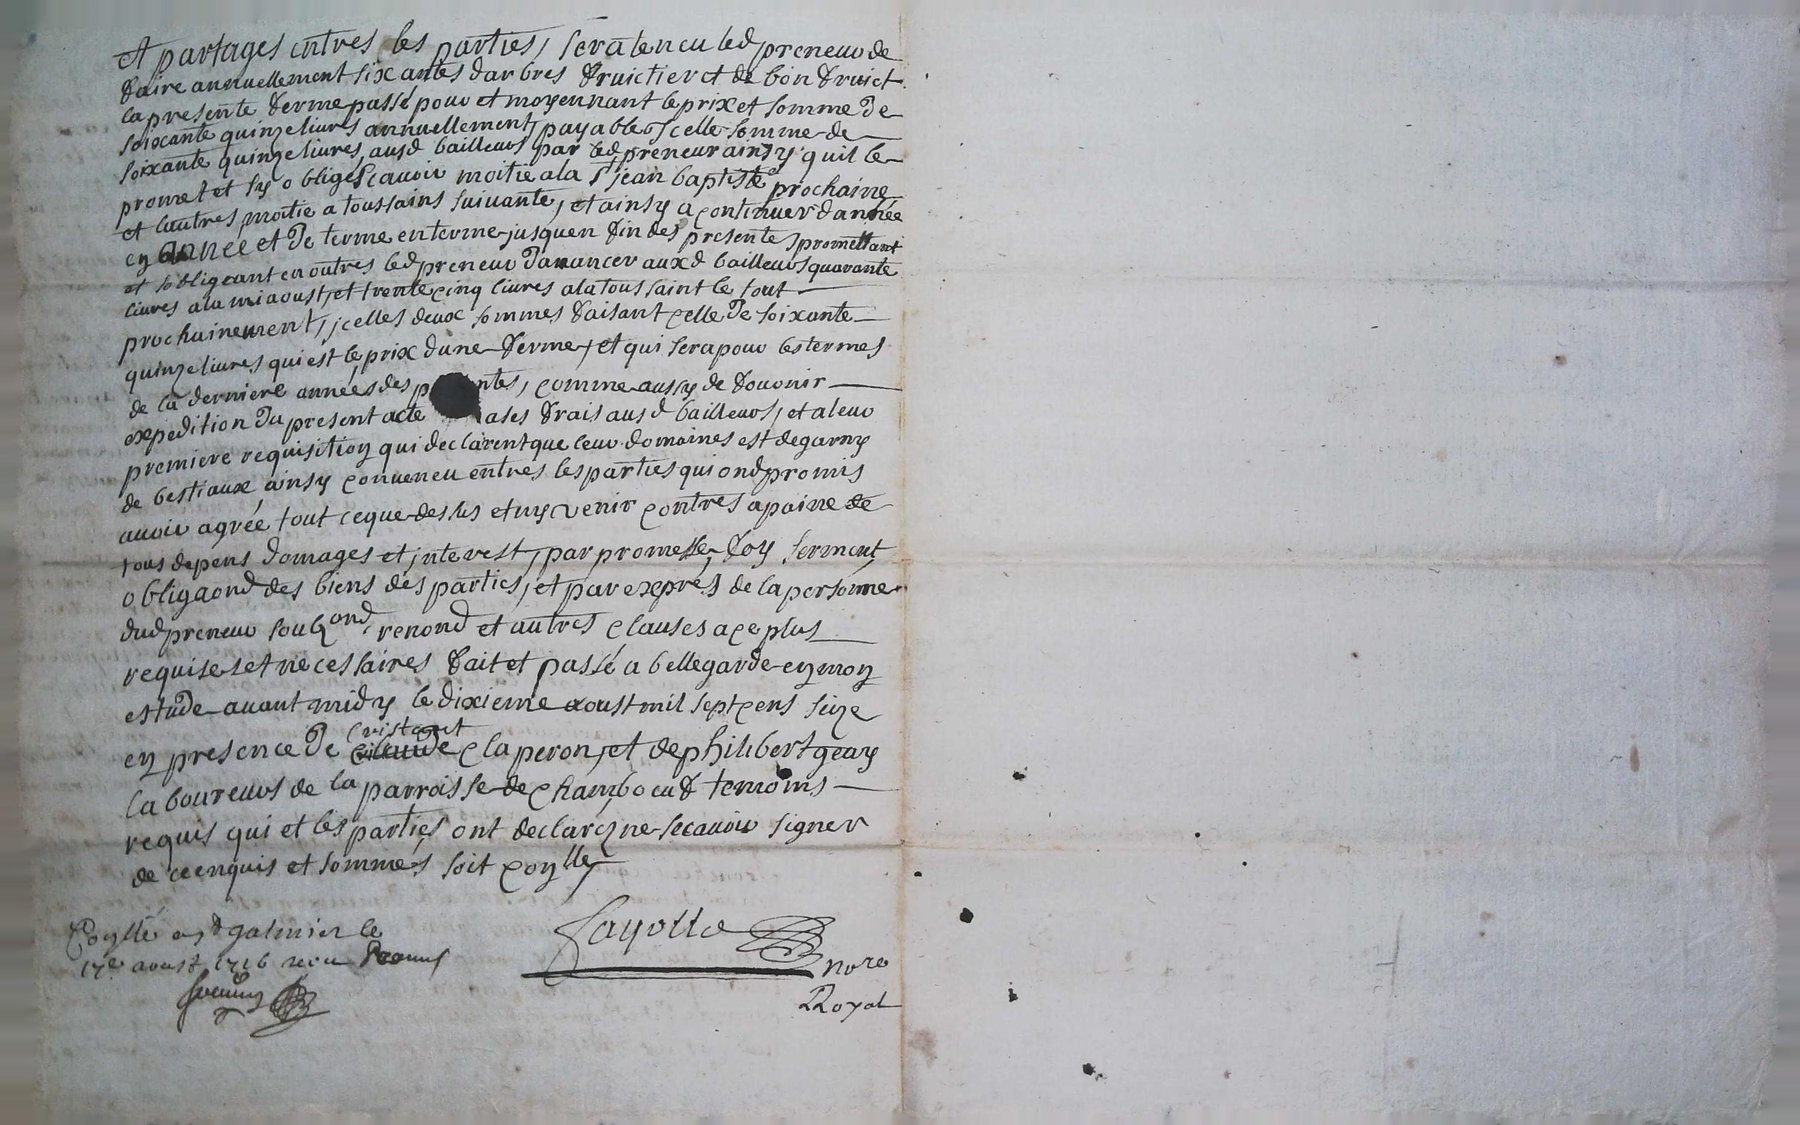 et partages entres les parties, sera teneu led preneur de
faire annuellement six antes darbres fruictier et de bon fruict
la presente ferme passé pour et moyennant le prix et somme de
soixante quinze livres annuellement, payable jcelle somme de
soixante quinze livres, ausd bailleurs par led preneur ainsy quil le
promet et sy oblige scavoir moitie a la st jean baptiste prochaine
et lautres moitie a toussains suivante, et ainsy a continuer dannée
en année et de terme en terme jusquen fin des presentes promettant
et sobligeant en outres led preneur davancer auxd bailleurs quarante
livres a la mi aoust, et trente cinq livres a la toussaint le tout
prochainement, jcelles deux sommes faisant celle de soixante
quinze livres qui est le prix dune ferme, et qui sera pour les termes
de la derniere années des p ntes, comme aussy de fournir
expedition du present acte a ses frais ausd bailleurs, et a leur
premiere requisition qui declarent que leur domaines est degarny
de bestiaux ainsy conveneu entres les parties qui ond promis
avoir agréé tout ceque dessus et ny venir contres a paine de
tous depens domages et jnterest, par promesse foy serment,
obligaond des biens des parties, et par exprés de la personne
dud preneur soubzond, renond et autres clauses a ce plus
requises et necessaires fait et passé a bellegarde en mon
estude avant midy le dixieme aoust mil sept cens seize
en presence de claude claperon, et de philibert geay
laboureurs de la parroisse de chambocuf temoins
requis qui et les parties ont declarez ne scavoir signer
de ce enquis et sommés soit conlle
Fayolle
nore
Royal
Conllé a st galmier le
17e aoust 1716 receu